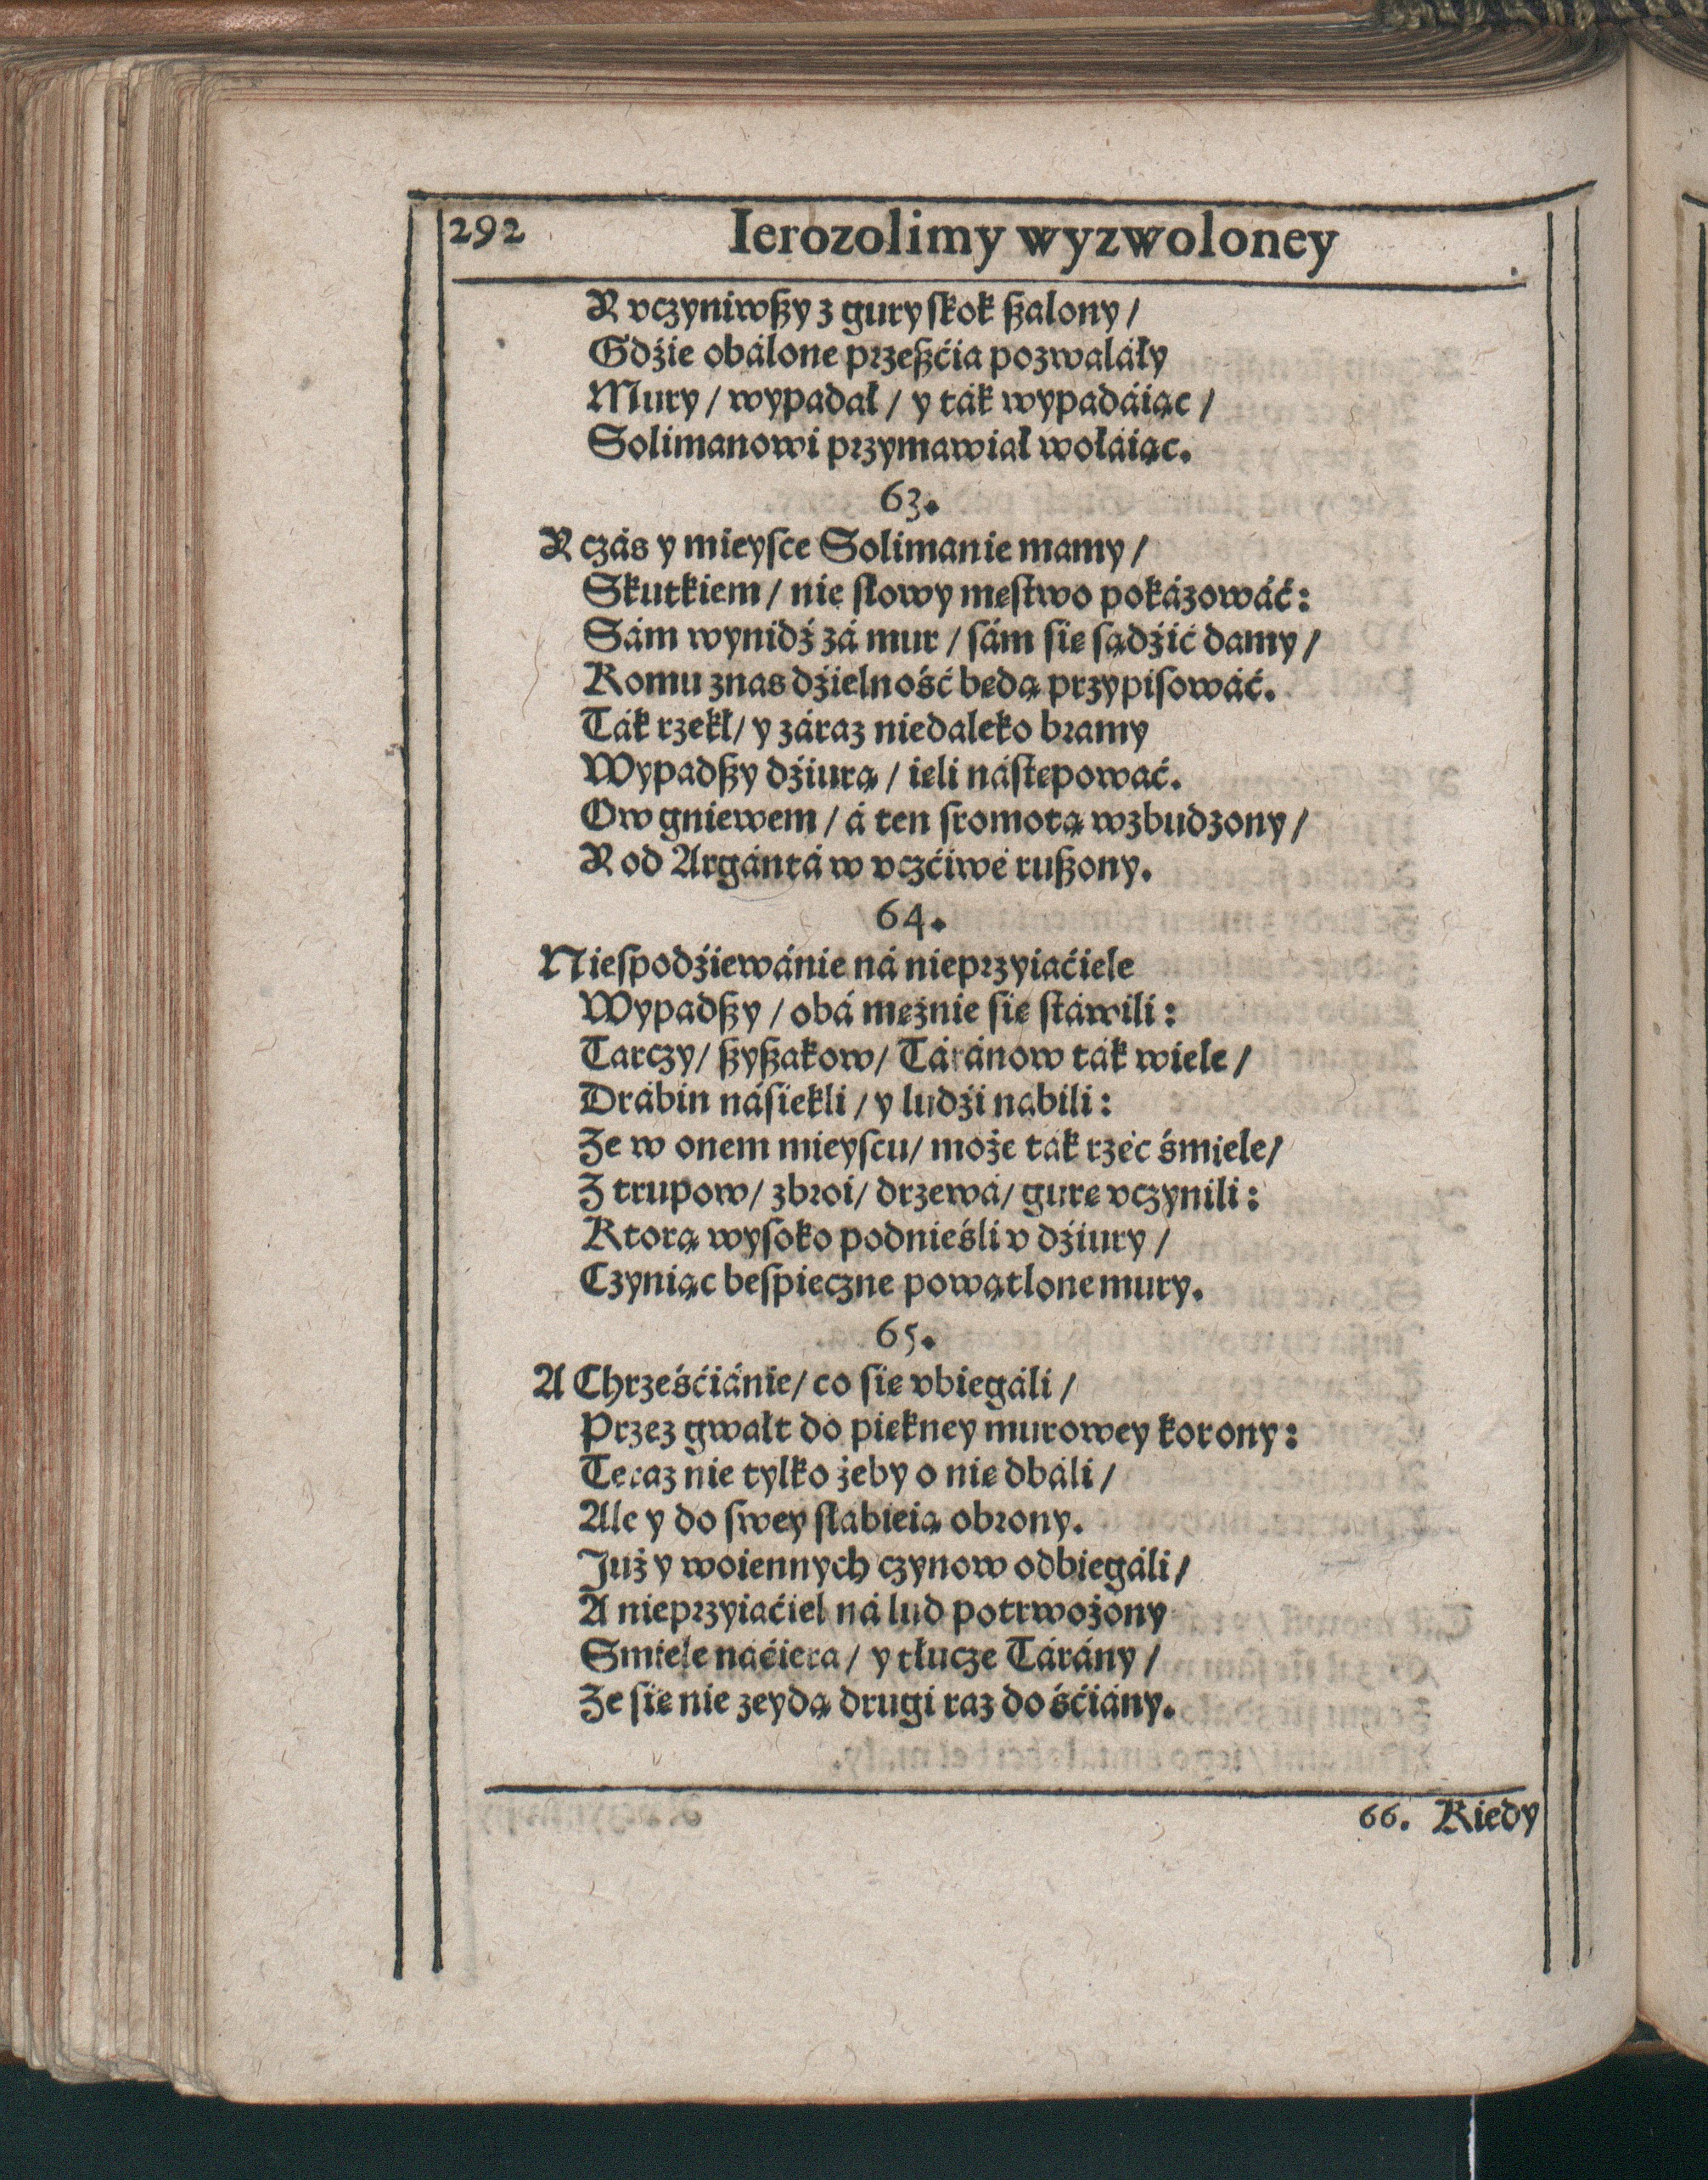 292 Ierozolimy wyzwoloney
Y vczyniwßy z gury skok ßalony /
Gdźie obálone przeßćia pozwaláły
Mury / wypadał / y ták wypadáiąc /
Solimanowi przymawiał wołáiąc.
63.
Y czás y mieysce Solimanie mamy /
Skutkiem / nie słowy męstwo pokázowáć:
Sám wynidź zá mur / sám się sądźić damy /
Komu znas dźielność będą przypisowáć.
Ták rzekł / y záraz niedaleko bramy
Wypadßy dźiurą / ięli nástępowáć.
Ow gniewem / á ten sromotą wzbudzony /
Y od Argántá w vczćiwé rußony.
64.
Niespodźiewánie ná nieprzyiaćiele
Wypadßy / obá mężnie się stáwili:
Tarczy / ßyßakow / Táránow ták wiele /
Drábin násiekli / y ludźi nabili:
Ze w onem mieyscu / może ták rzéc śmiele /
Z trupow / zbroi / drzewá / gurę vczynili:
Ktorą wysoko podnieśli v dźiury /
Czyniąc bespieczne powątlone mury.
65.
A Chrześćiánie / co się vbiegáli /
Przez gwałt do piękney murowey korony:
Teraz nie tylko żeby o nię dbáli /
Ale y do swey słabieią obrony.
Już y woiennych czynow odbiegáli /
A nieprzyiaćiel ná lud potrwożony
Smiele náćiera / y tłucze Tárány /
Ze się nie zeydą drugi raz do śćiány.
66. Kiedy